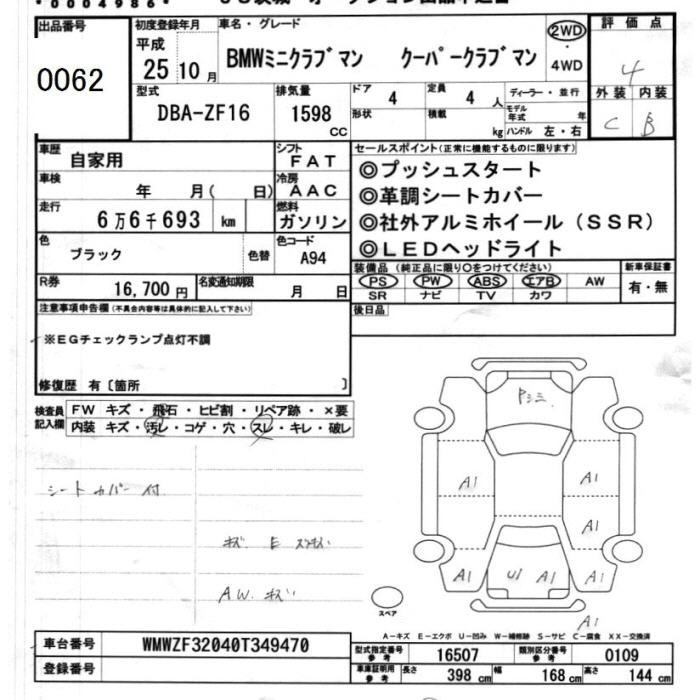 *0004986*
出品番号
0062
初度登録年月
平成
25 10 月
車名・グレード
BMWミニクラブマン クーパークラブマン
2WD
・
4WD
評価点
4
外装 内装
C B
型式
DBA-ZF16
排気量
1598
CC
ドア
4
定員
4 人
形状
積載
kg
ディーラー・並行
モデル年式 年
ハンドル 左・右
車歴
自家用
シフト
FAT
車検
年 月( 日)
冷房
AAC
走行
6万6千693 km
燃料
ガソリン
色
ブラック
色替
色コード
A94
R券
16,700円
名変通知期限
月 日
セールスポイント(正常に機能するものに限ります)
◎プッシュスタート
◎革調シートカバー
◎社外アルミホイール(SSR)
◎LEDヘッドライト
装備品(純正品に限り○をつけてください)
PS PW ABS エアB AW
SR ナビ TV カワ
新車保証書
有・無
後日品
注意事項申告欄(不具合内容等は具体的に記入して下さい)
※EGチェックランプ点灯不調
修復歴 有〔箇所 〕
検査員記入欄
FW キズ・飛石・ヒビ割・リペア跡・×要
内装 キズ・汚レ・コゲ・穴・スレ・キレ・破レ
シートカバー付
キズ E スリキズ
AW.キズ
Pシミ
A1
A1
A1
A1
U1 A1
A1
A1
スペア
A-キズ E-エクボ U-凹み W-補修跡 S-サビ C-腐食 XX-交換済
車台番号
WMWZF32040T349470
登録番号
型式指定番号 参考
16507
類別区分番号 参考
0109
車庫証明用 参考
長さ 398 cm
幅 168 cm
高さ 144 cm